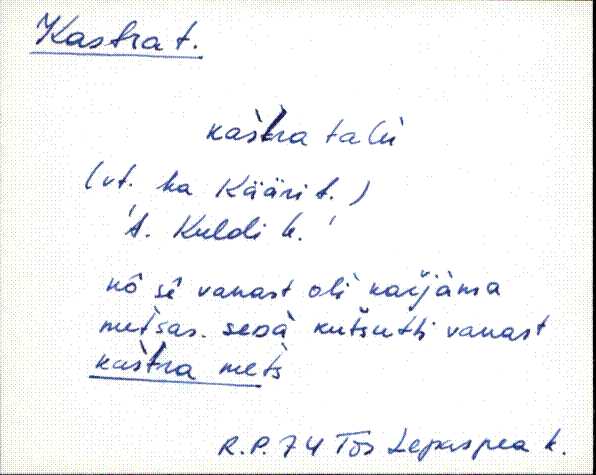 Kastra t.
kaštra talu
(vt. ka Kääri t.)
'A. Kuldi k.'
nô sê vanast oli karjàma
metsas. sedà kutšutti vanast
kaštra mets
R.P. 74 Tõs Lepaspea k.